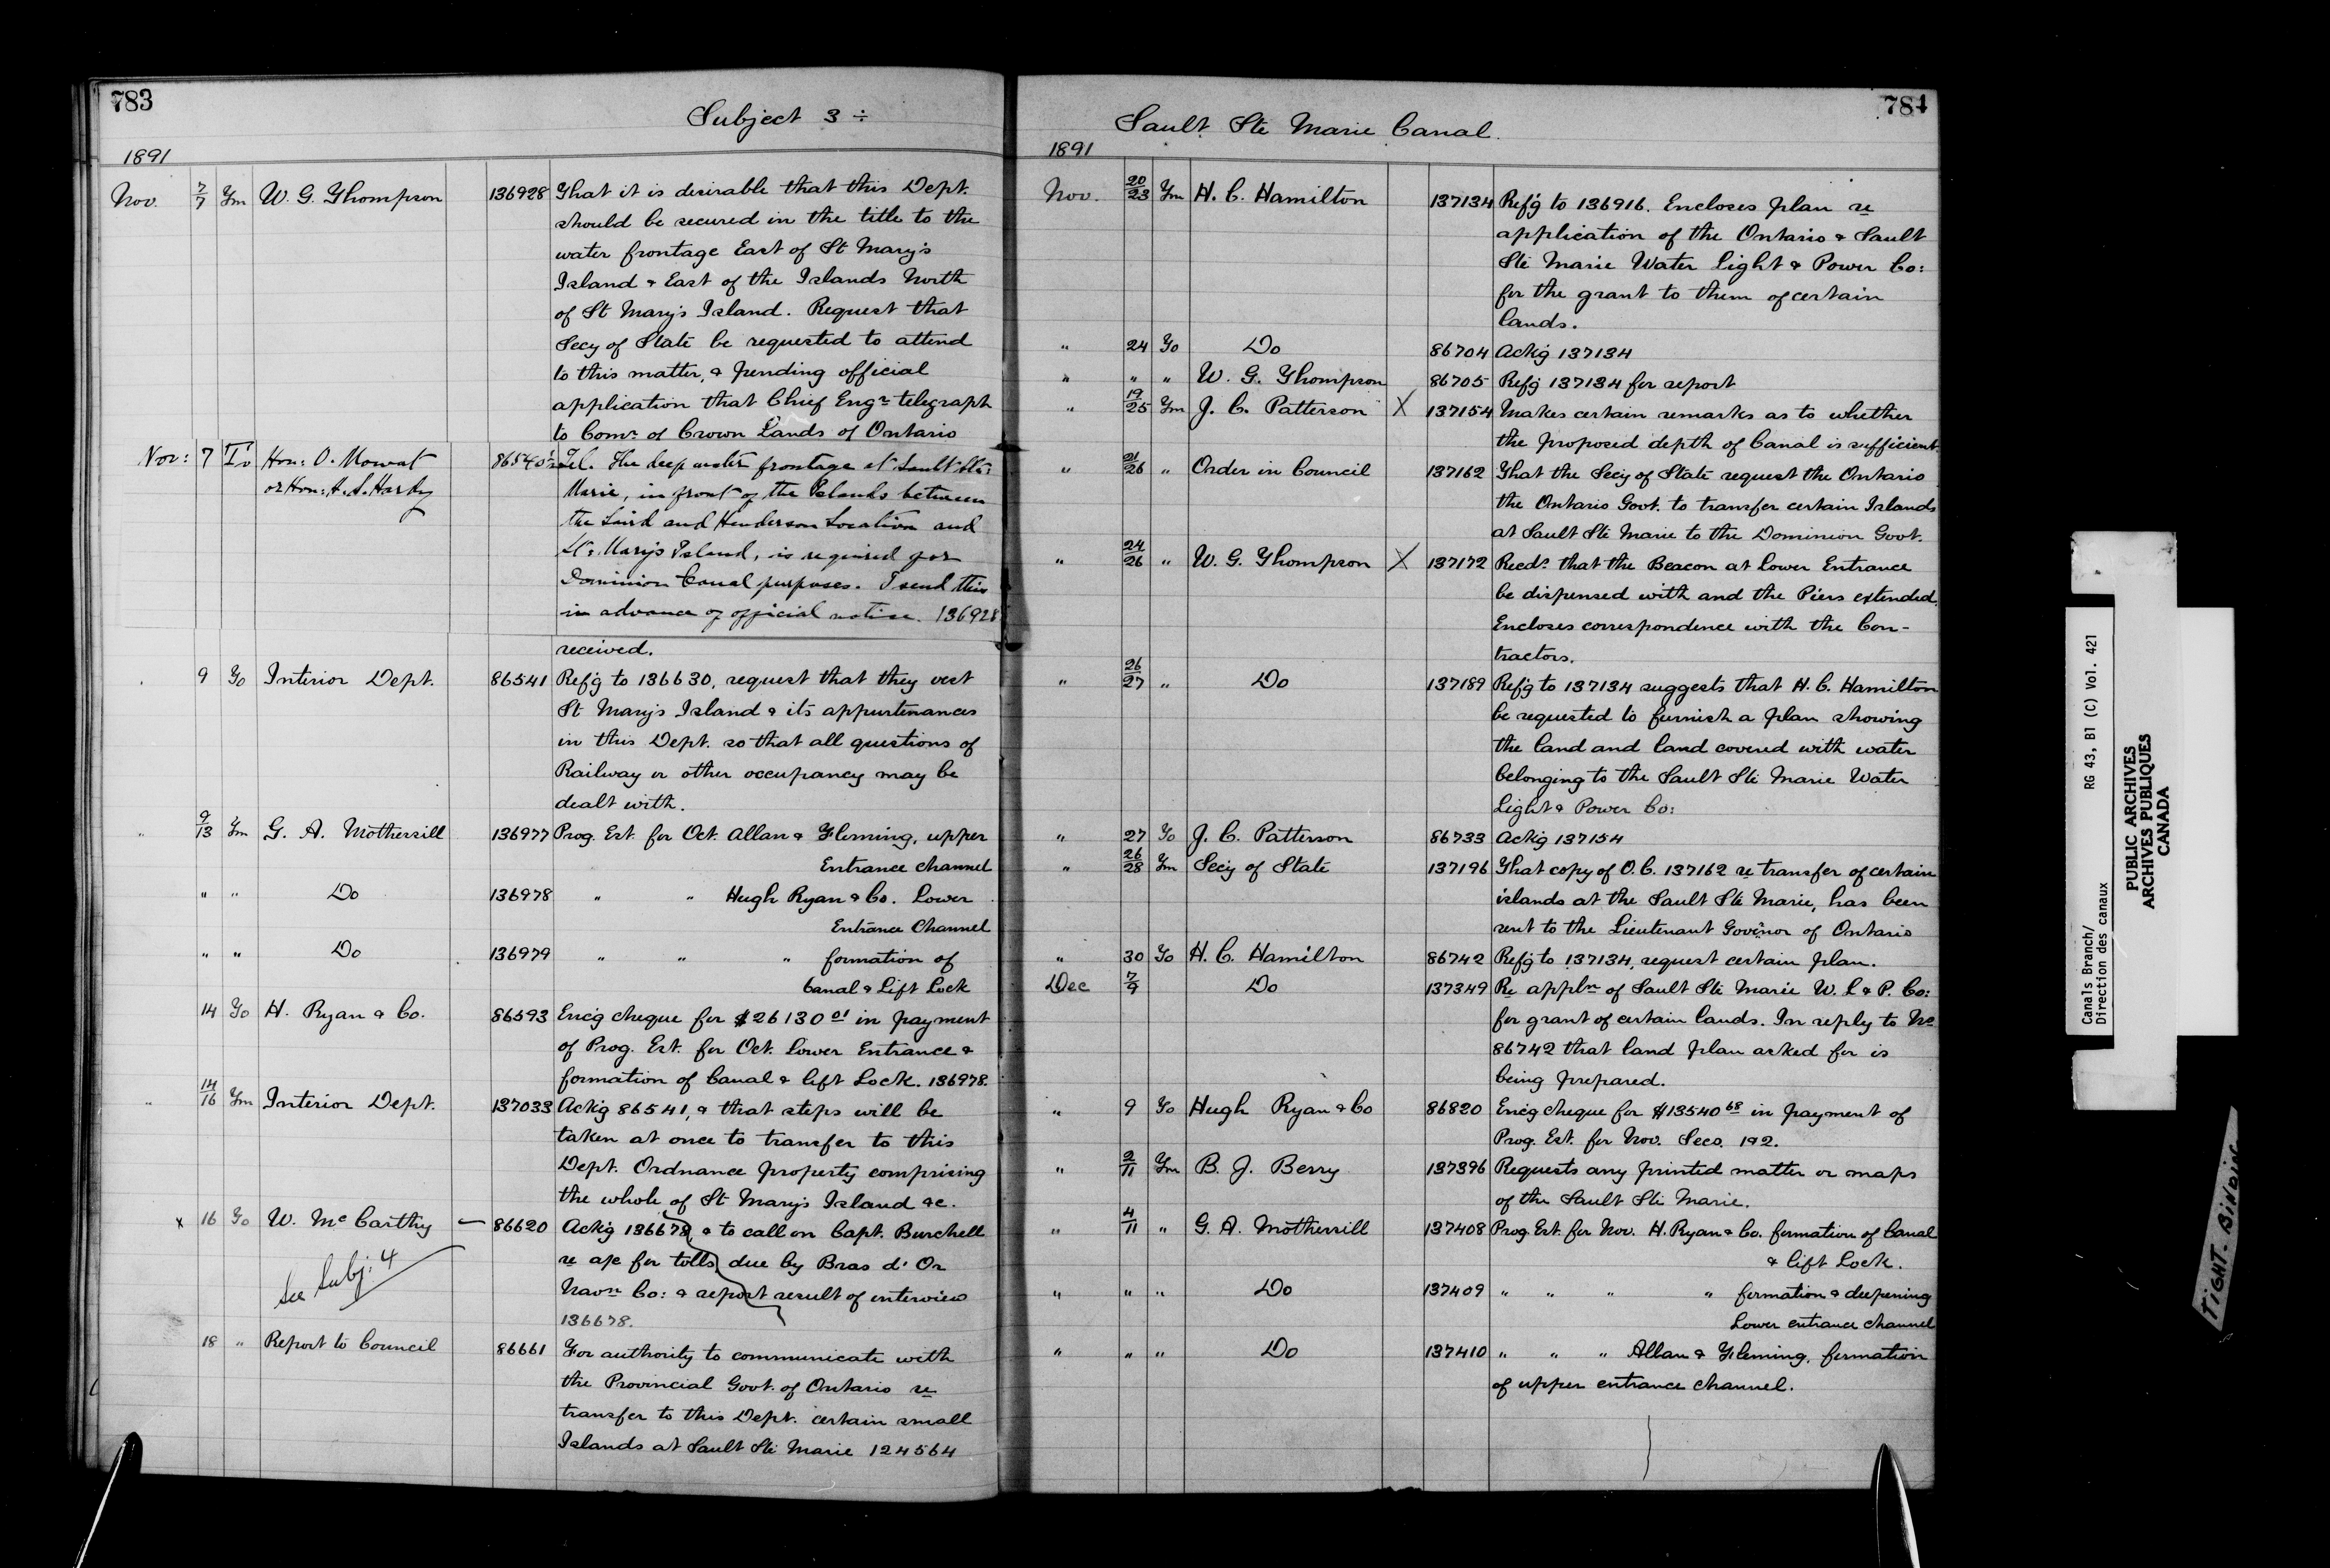 783
Subject 3 ÷
1891
Nov. 7/7 Fm W. G. Thompson 136928 That it is desirable that this Dept.
should be secured in the title to the
water frontage East of St Mary's
Island & East of the Islands North
of St Mary's Island. Request that
Secy of State be requested to attend
to this matter, & pending official
application that Chief Engr telegraph
to Comr of Crown Lands of Ontario
Nov: 7 To Hon: O. Mowat 86540½ Tel. The deep water frontage at Sault Ste
or Hon: A. S. Hardy Marie, in front of the Islands between
the Laird and Henderson Location and
St. Mary's Island, is required for
Dominion Canal purposes. I send this
in advance of official notice. 136928
received.
9 To Interior Dept. 86541 Ref'g to 136630, request that they vest
St Mary's Island & its appurtenances
in this Dept. so that all questions of
Railway or other occupancy may be
dealt with.
" 9/13 Fm G. A. Mothersill 136977 Prog. Est. for Oct. Allan & Fleming, upper
Entrance channel
" " Do 136978 " " Hugh Ryan & Co. Lower
Entrance Channel
" " Do 136979 " " " formation of
Canal & Lift Lock
14 To H. Ryan & Co. 86593 Enc'g cheque for $26130 01 in payment
of Prog. Est. for Oct. Lower Entrance &
formation of Canal & Lift Lock. 136978.
" 14/16 Fm Interior Dept. 137033 Ack'g 86541, & that steps will be
taken at once to transfer to this
Dept. Ordnance property comprising
the whole of St Mary's Island &c.
x 16 To W. McCarthy — 86620 Ack'g 136678, & to call on Capt. Burchell
See Subj: 4 re a/c for tolls due by Bras d'Or
Navn Co: & report result of interview
136678.
18 " Report to Council 86661 For authority to communicate with
the Provincial Govt. of Ontario re
transfer to this Dept. certain small
Islands at Sault Ste Marie 124564
784
Sault Ste Marie Canal.
1891
Nov. 20/23 Fm H. C. Hamilton 137134 Ref'g to 136916. Encloses plan re
application of the Ontario & Sault
Ste Marie Water Light & Power Co:
for the grant to them of certain
lands.
" 24 To Do 86704 Ack'g 137134
" " " W. G. Thompson 86705 Ref'g 137134 for report
" 19/25 Fm J. C. Patterson X 137154 Makes certain remarks as to whether
the proposed depth of Canal is sufficient.
" 21/26 " Order in Council 137162 That the Secy of State request the Ontario
the Ontario Govt. to transfer certain Islands
at Sault Ste Marie to the Dominion Govt.
" 24/26 " W. G. Thompson X 137172 Recds that the Beacon at Lower Entrance
be dispensed with and the Piers extended.
Encloses correspondence with the Con-
tractors.
" 26/27 " Do 137189 Ref'g to 137134 suggests that H. C. Hamilton
be requested to furnish a plan showing
the land and land covered with water
belonging to the Sault Ste Marie Water
Light & Power Co:
" 27 To J. C. Patterson 86733 Ack'g 137154
" 26/28 Fm Secy of State 137196 That copy of O.C. 137162 re transfer of certain
islands at the Sault Ste Marie, has been
sent to the Lieutenant Governor of Ontario
" 30 To H. C. Hamilton 86742 Ref'g to 137134, request certain plan.
Dec 7/9 Do 137349 Re appln of Sault Ste Marie W. L & P. Co:
for grant of certain lands. In reply to No
86742 that land plan asked for is
being prepared.
" 9 To Hugh Ryan & Co 86820 Enc'g cheque for $13540 68 in payment of
Prog. Est. for Nov. Secs. 1 & 2.
" 2/11 Fm B. J. Berry 137396 Requests any printed matter or maps
of the Sault Ste Marie.
" 4/11 " G. A. Mothersill 137408 Prog. Est. for Nov. H. Ryan & Co. formation of Canal
& Lift Lock.
" " " Do 137409 " " " " formation & deepening
Lower entrance channel
" " " Do 137410 " " " Allan & Fleming, formation
of upper entrance channel.
Canals Branch/ RG 43, B1 (C) Vol. 421
Direction des canaux
PUBLIC ARCHIVES
ARCHIVES PUBLIQUES
CANADA
TIGHT. BINDING